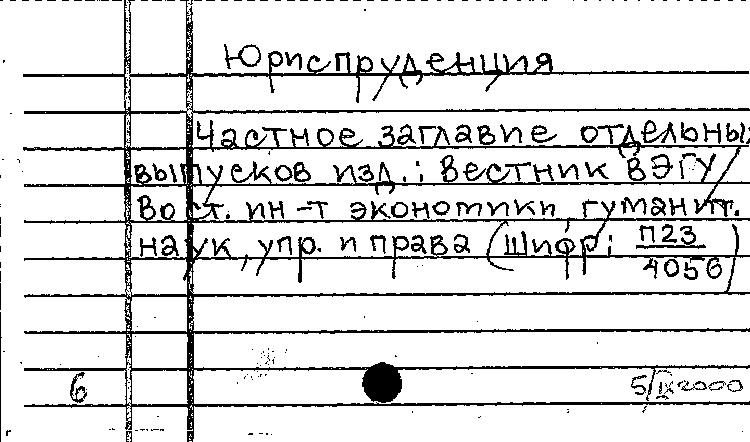 Юриспруденция
Частное заглавие отдельных
выпусков изд.: Вестник ВЭГУ /
Вост. ин-т экономики, гуманит.
наук, упр. и права (Шифр: П23/4056)
6
5/IX 2000